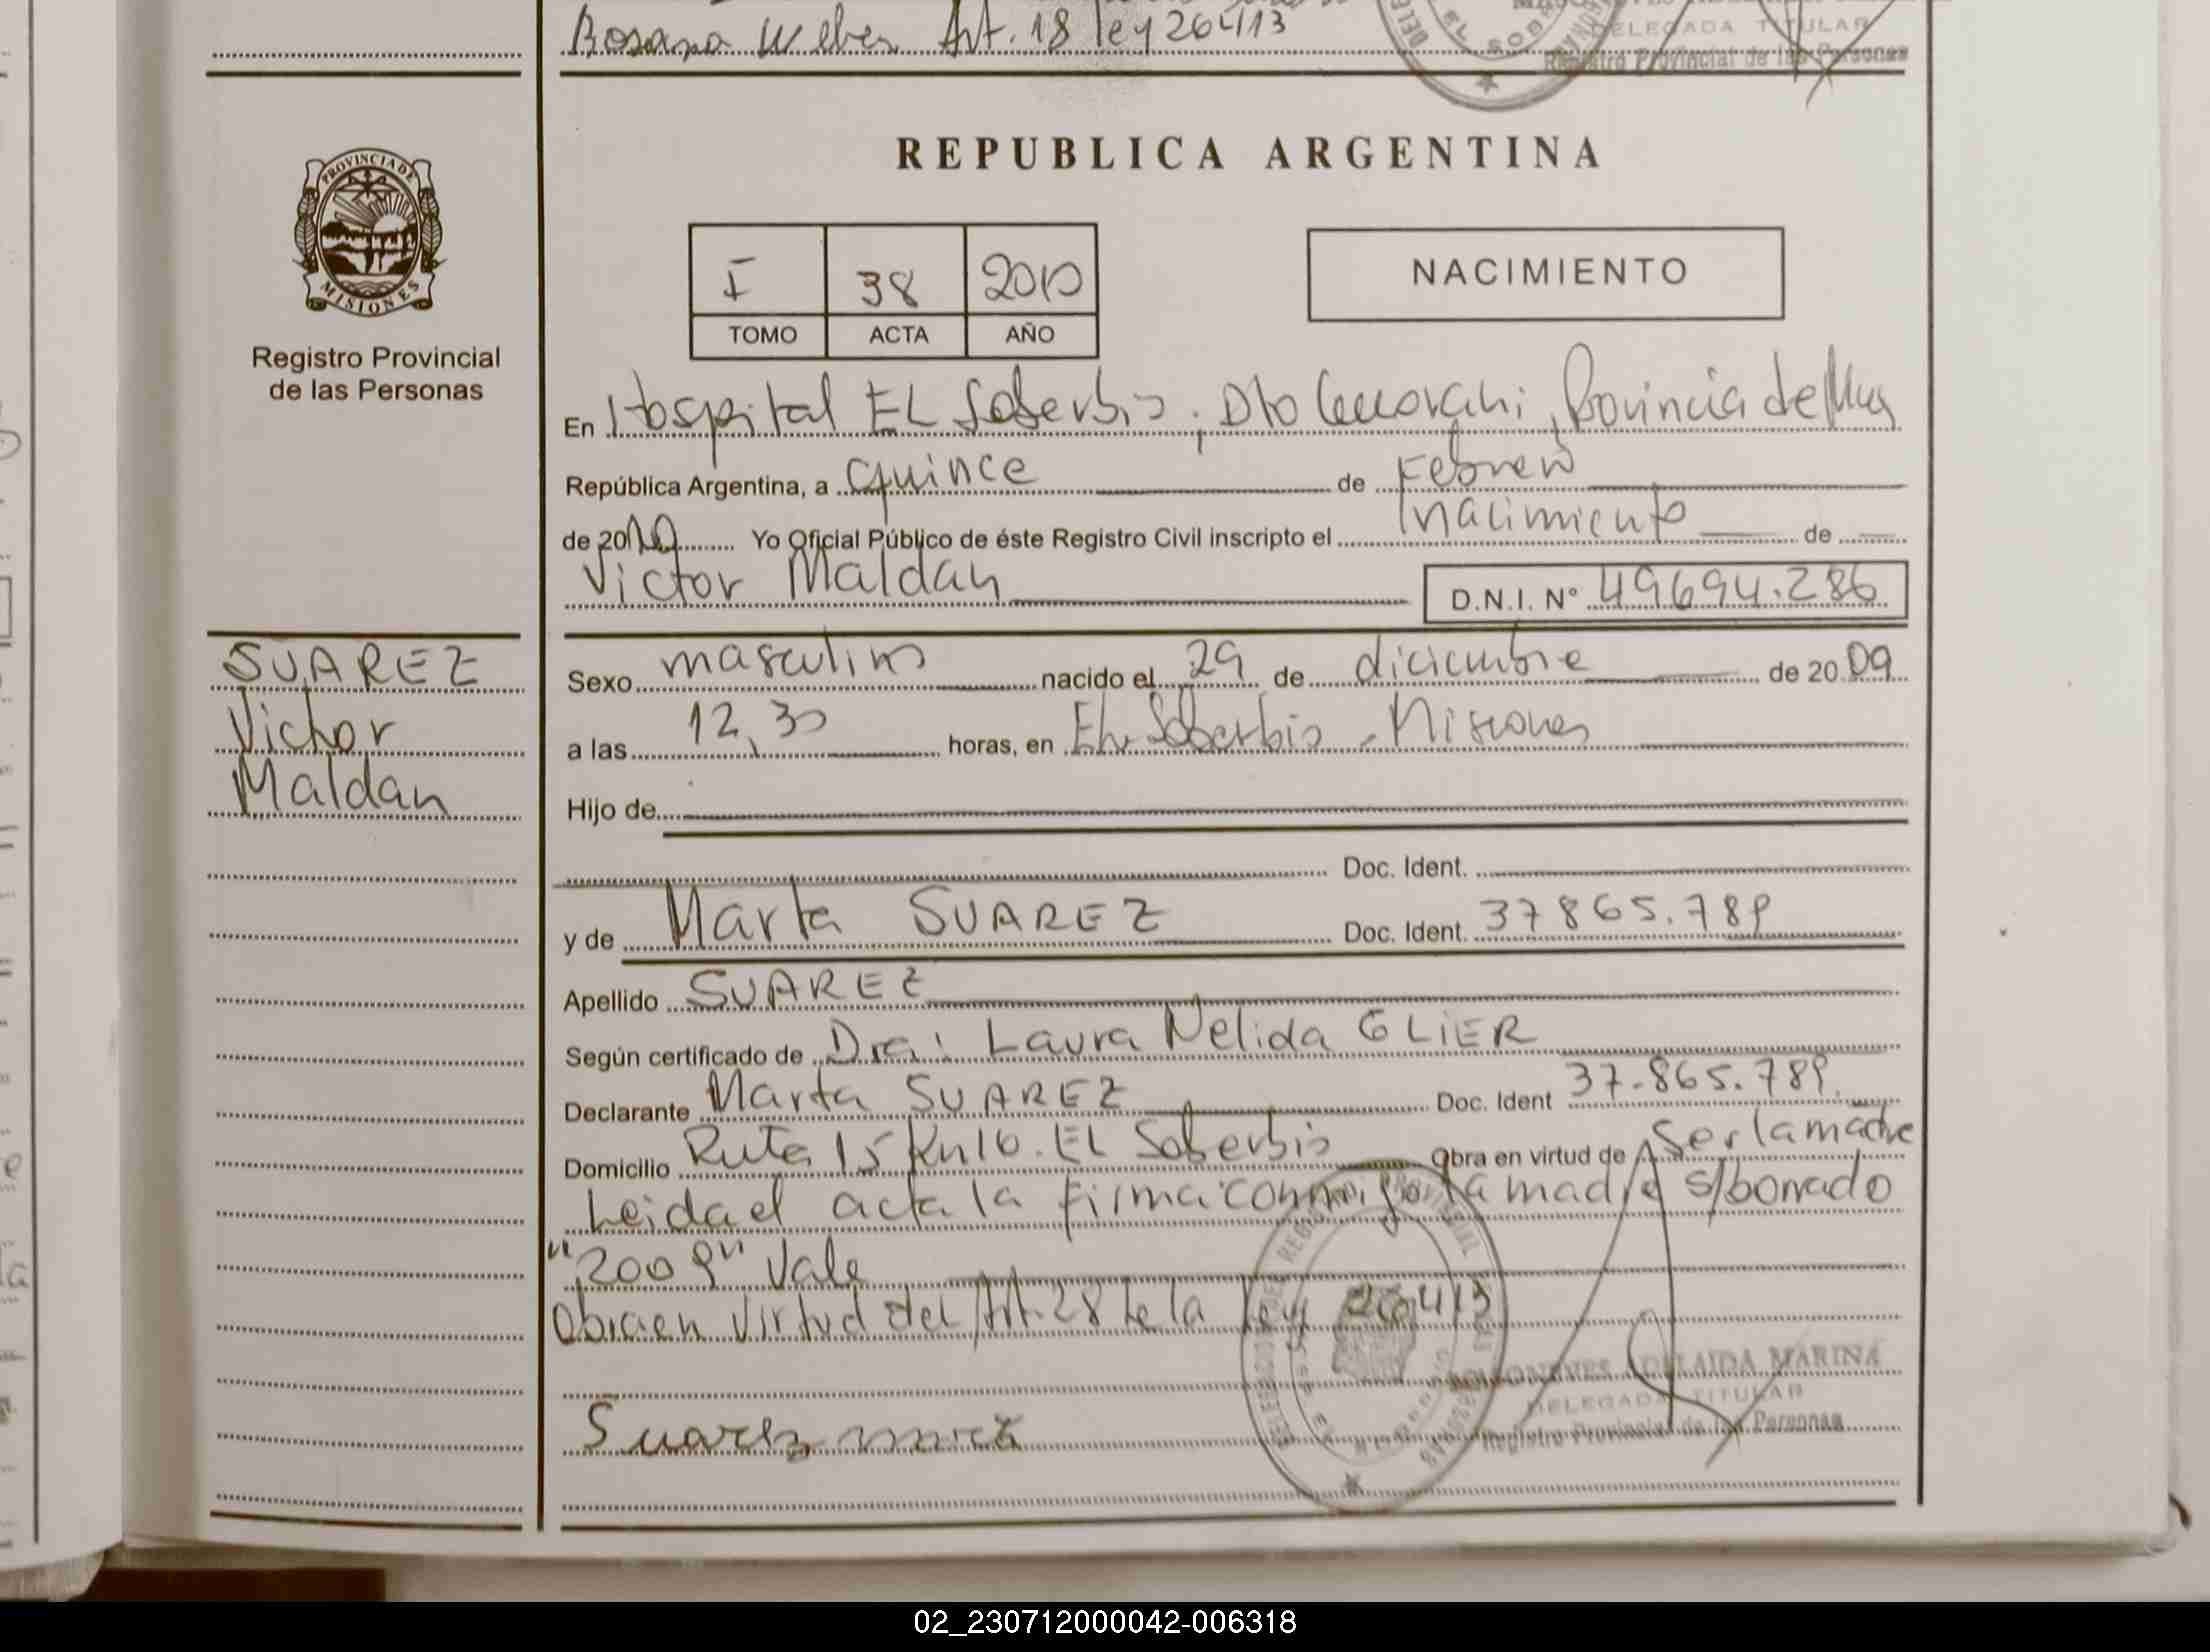 Rosana Weber Art. 18 ley 26413
DELEGADA TITULAR
Registro Provincial de las Personas
REPUBLICA ARGENTINA
PROVINCIA DE
MISIONES
Registro Provincial
de las Personas
I 38 2010
TOMO ACTA AÑO
NACIMIENTO
En Hospital EL Soberbio, Dto Provincia de Mnes
República Argentina, a quince de Febrero
de 2010 Yo Oficial Público de éste Registro Civil inscripto el nacimiento de
Victor Maldan D.N.I. N° 49694.286
SUAREZ
Victor
Maldan
Sexo masculino nacido el 29 de diciembre de 2009
a las 12,30 horas, en El Soberbio - Misiones
Hijo de
Doc. Ident.
y de Marta SUAREZ Doc. Ident. 37865.789
Apellido SUAREZ
Según certificado de Dra: Laura Nelida GLIER
Declarante Marta SUAREZ Doc. Ident 37.865.789
Domicilio Ruta 15 Km16. EL Soberbio Obra en virtud de Ser la madre
Leida el acta la firma conmigo la madre s/borrado
"2009" Vale
Obra en Virtud del Art. 28 de la ley 26413
ADELAIDA MARINA
DELEGADA TITULAR
Registro Provincial de las Personas
Suarez
02_230712000042-006318